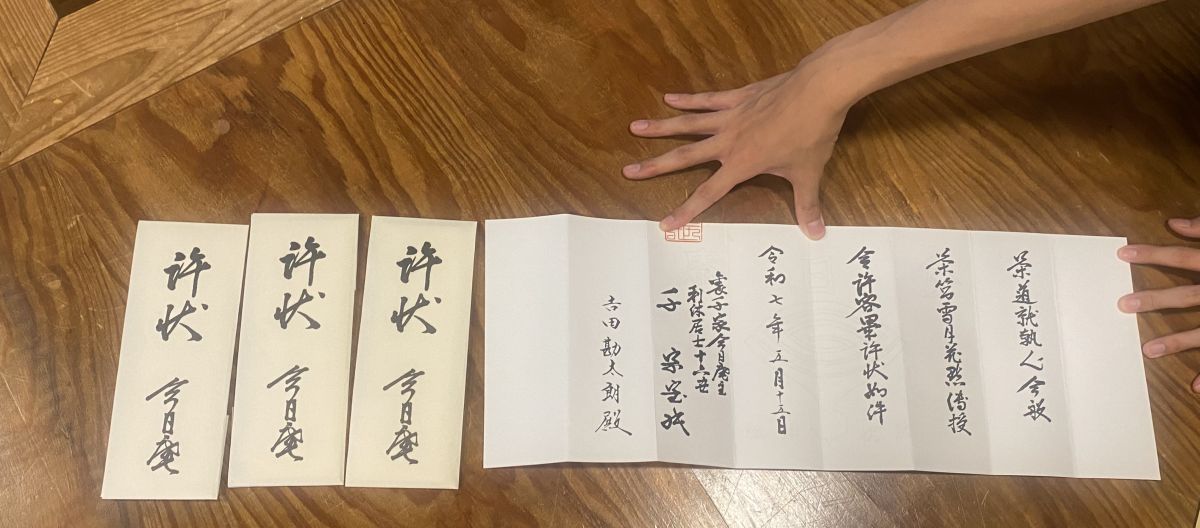 茶道就執心今般
茶筥雪月花点傳授
令許容畢許状如件
令和七年五月十五日
裏千家今日庵主
利休居士十六世
千 宗室
吉田勘太朗 殿
許状 今日庵
許状 今日庵
許状 今日庵